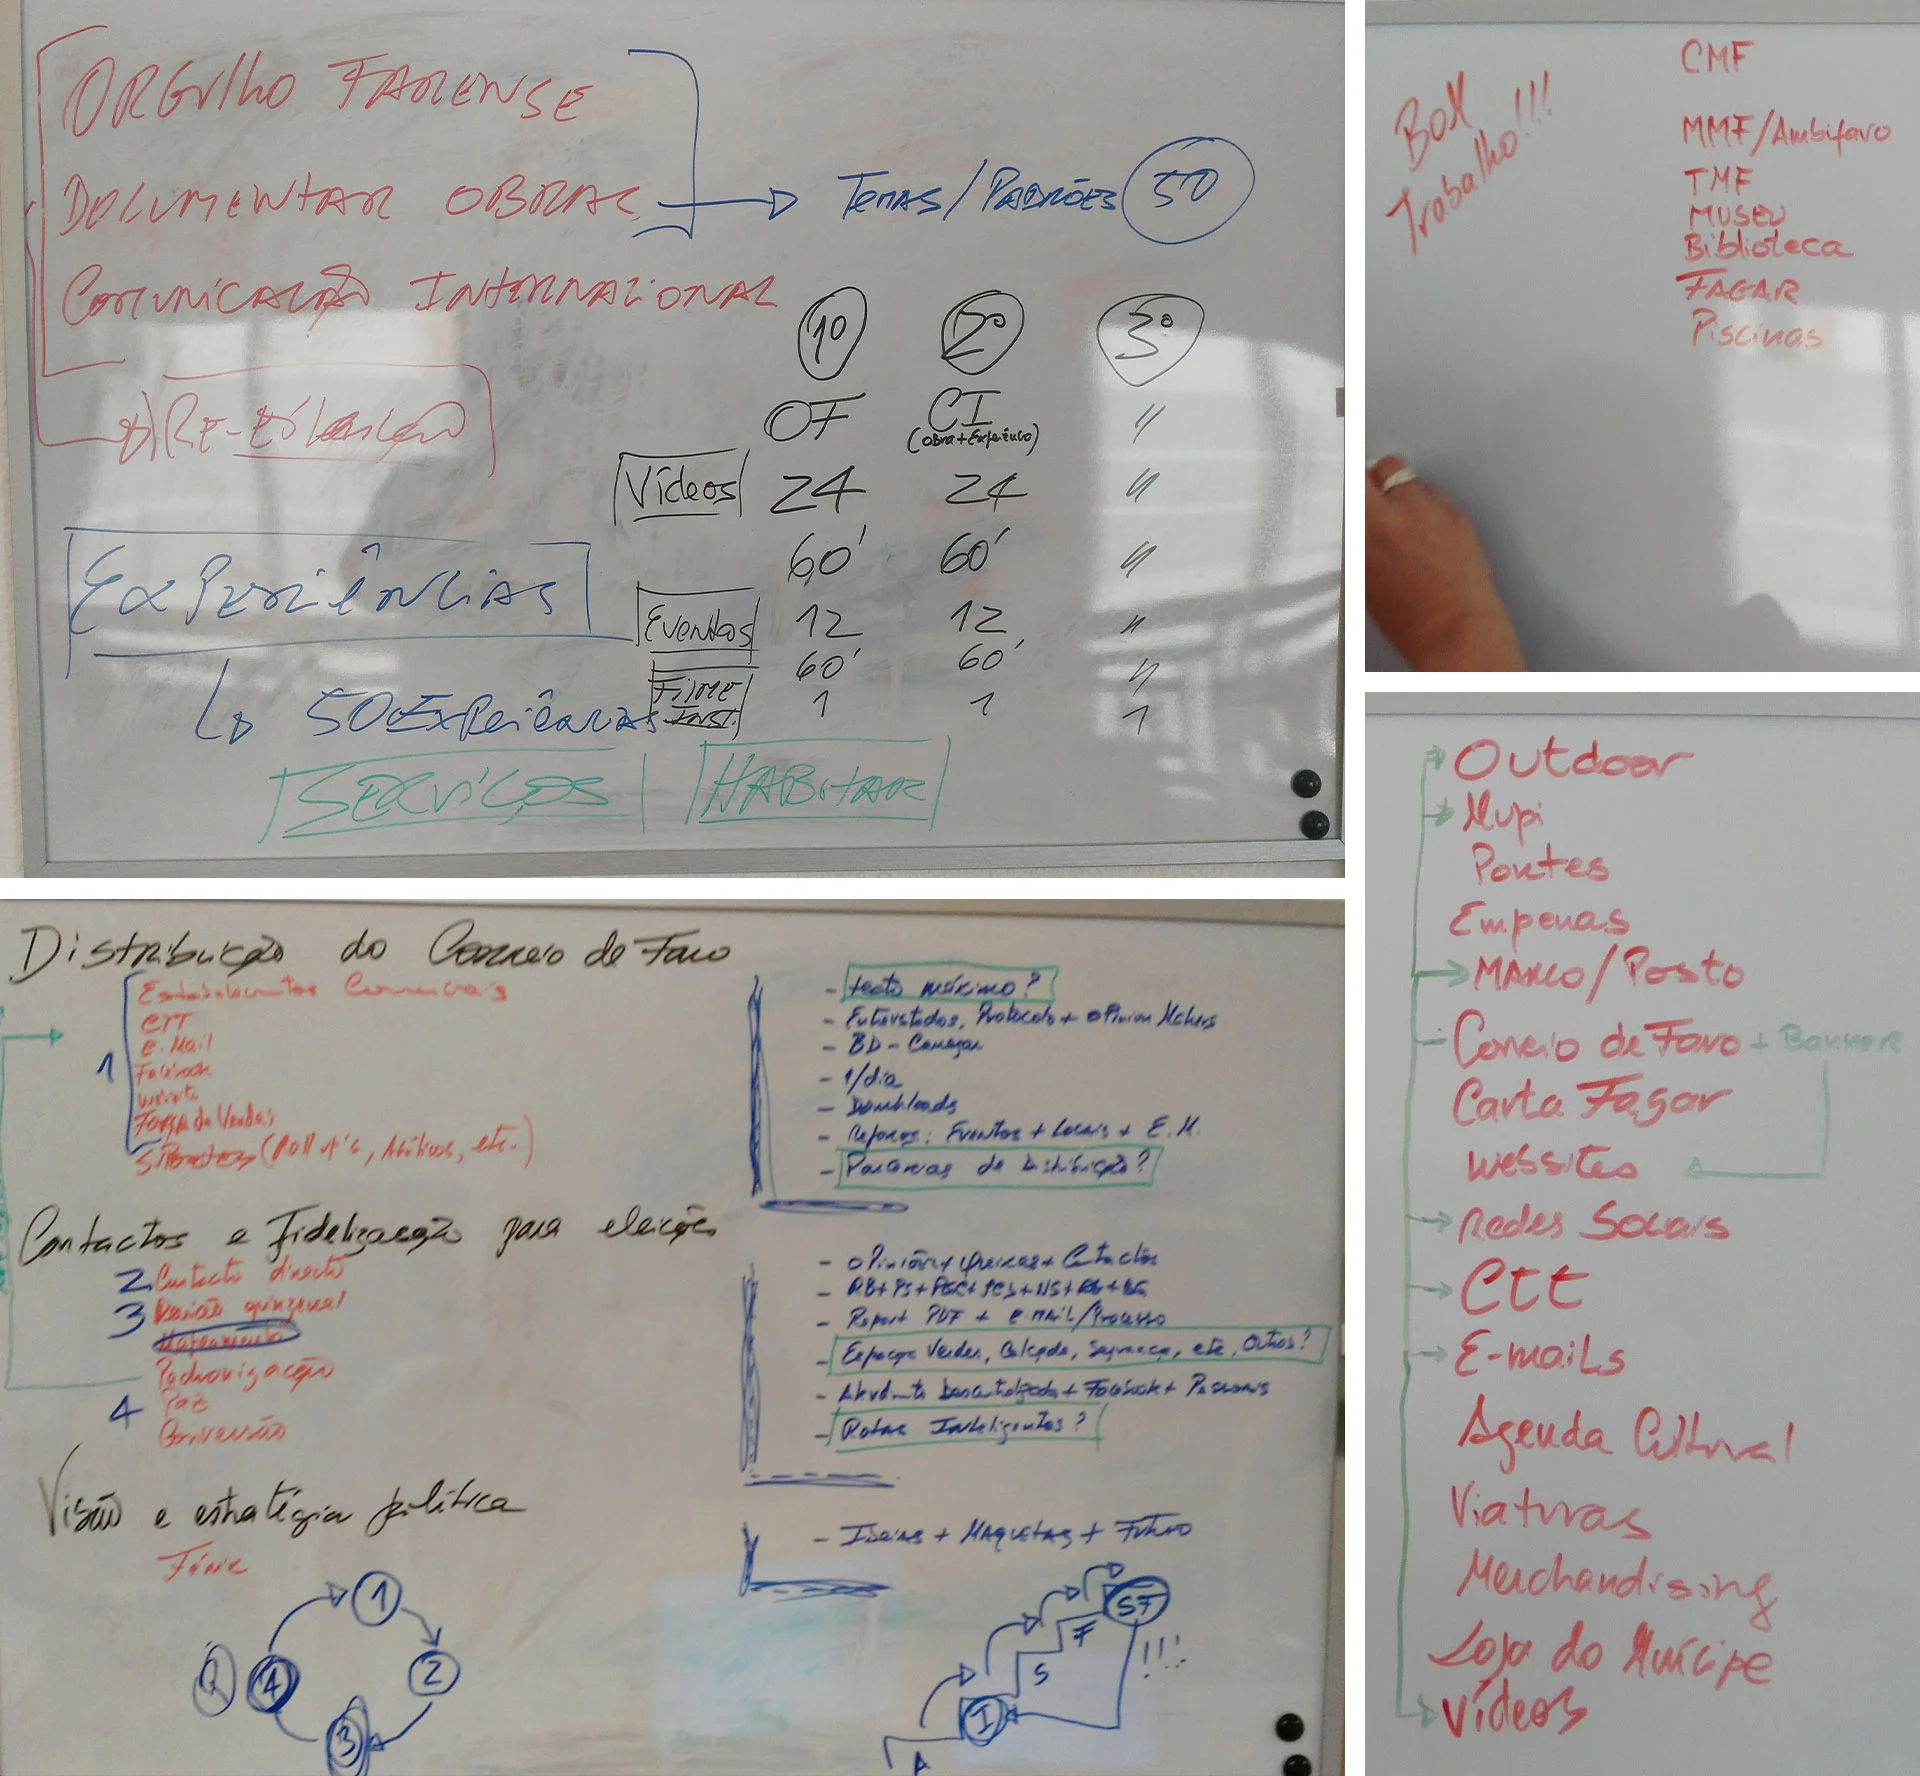 ORGULHO FARENSE
DOCUMENTAR OBRAS
TEMAS/PADRÕES 50
COMUNICAÇÃO INTERNACIONAL
1º 2º 3º
OF CI "
(obra+Experiência)
Vídeos 24 24 "
60' 60' "
Eventos 12 12 "
60' 60' "
FILME INST. 1 1 1
EXPERIÊNCIAS
50 EXPERIÊNCIAS
SERVIÇOS HABITAR
Box
Trabalho!!!
CMF
MMF/Ambifaro
TMF
MUSEU
Biblioteca
FAGAR
Piscinas
Distribuição do Correio de Faro
1
Estabelecimentos Comerciais
CTT
E-Mail
Facebook
website
Força de Vendas
Suportes (Roll up's, Acrílicos, etc.)
- texto máximo?
- Entrevistados, Protocolo + Opinion Makers
- BD - Começar
- 1/dia
- Downloads
- Reforços: Eventos + Locais + E.M.
- Parcerias de distribuição?
Contactos e Fidelização para eleições
2 Contacto directo
3 Reunião quinzenal
Mapeamento
Padronização
4 Paz
Conversão
- Opiniões + Queixas + Contactos
- Report PDF + e-mail/Processo
- Espaços Verdes, Calçada, Segurança, etc. Outros?
- Facebook + Pessoais
- Rotas Inteligentes?
Visão e estratégia política
- Ideias + Maquetas + Futuro
1
2
3
4
A
I
S
F
SF
!!!
Outdoor
Mupi
Pontes
Empenas
MARCO/Posto
Correio de Faro + Banners
Carta Fagar
Webssites
Redes Sociais
CTT
E-mails
Agenda Cultural
Viaturas
Merchandising
Loja do Munícipe
Vídeos